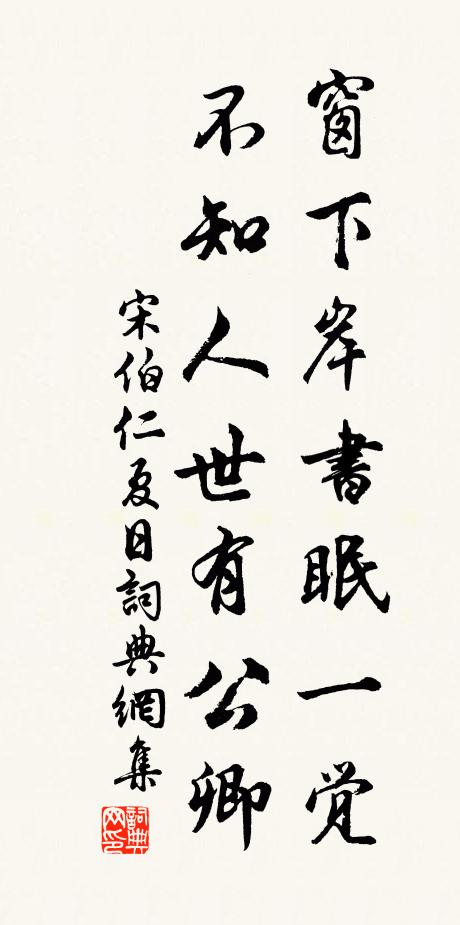 窗下岸書眠一觉
不知人世有公卿
宋伯仁夏日詞典網集
詞典网印